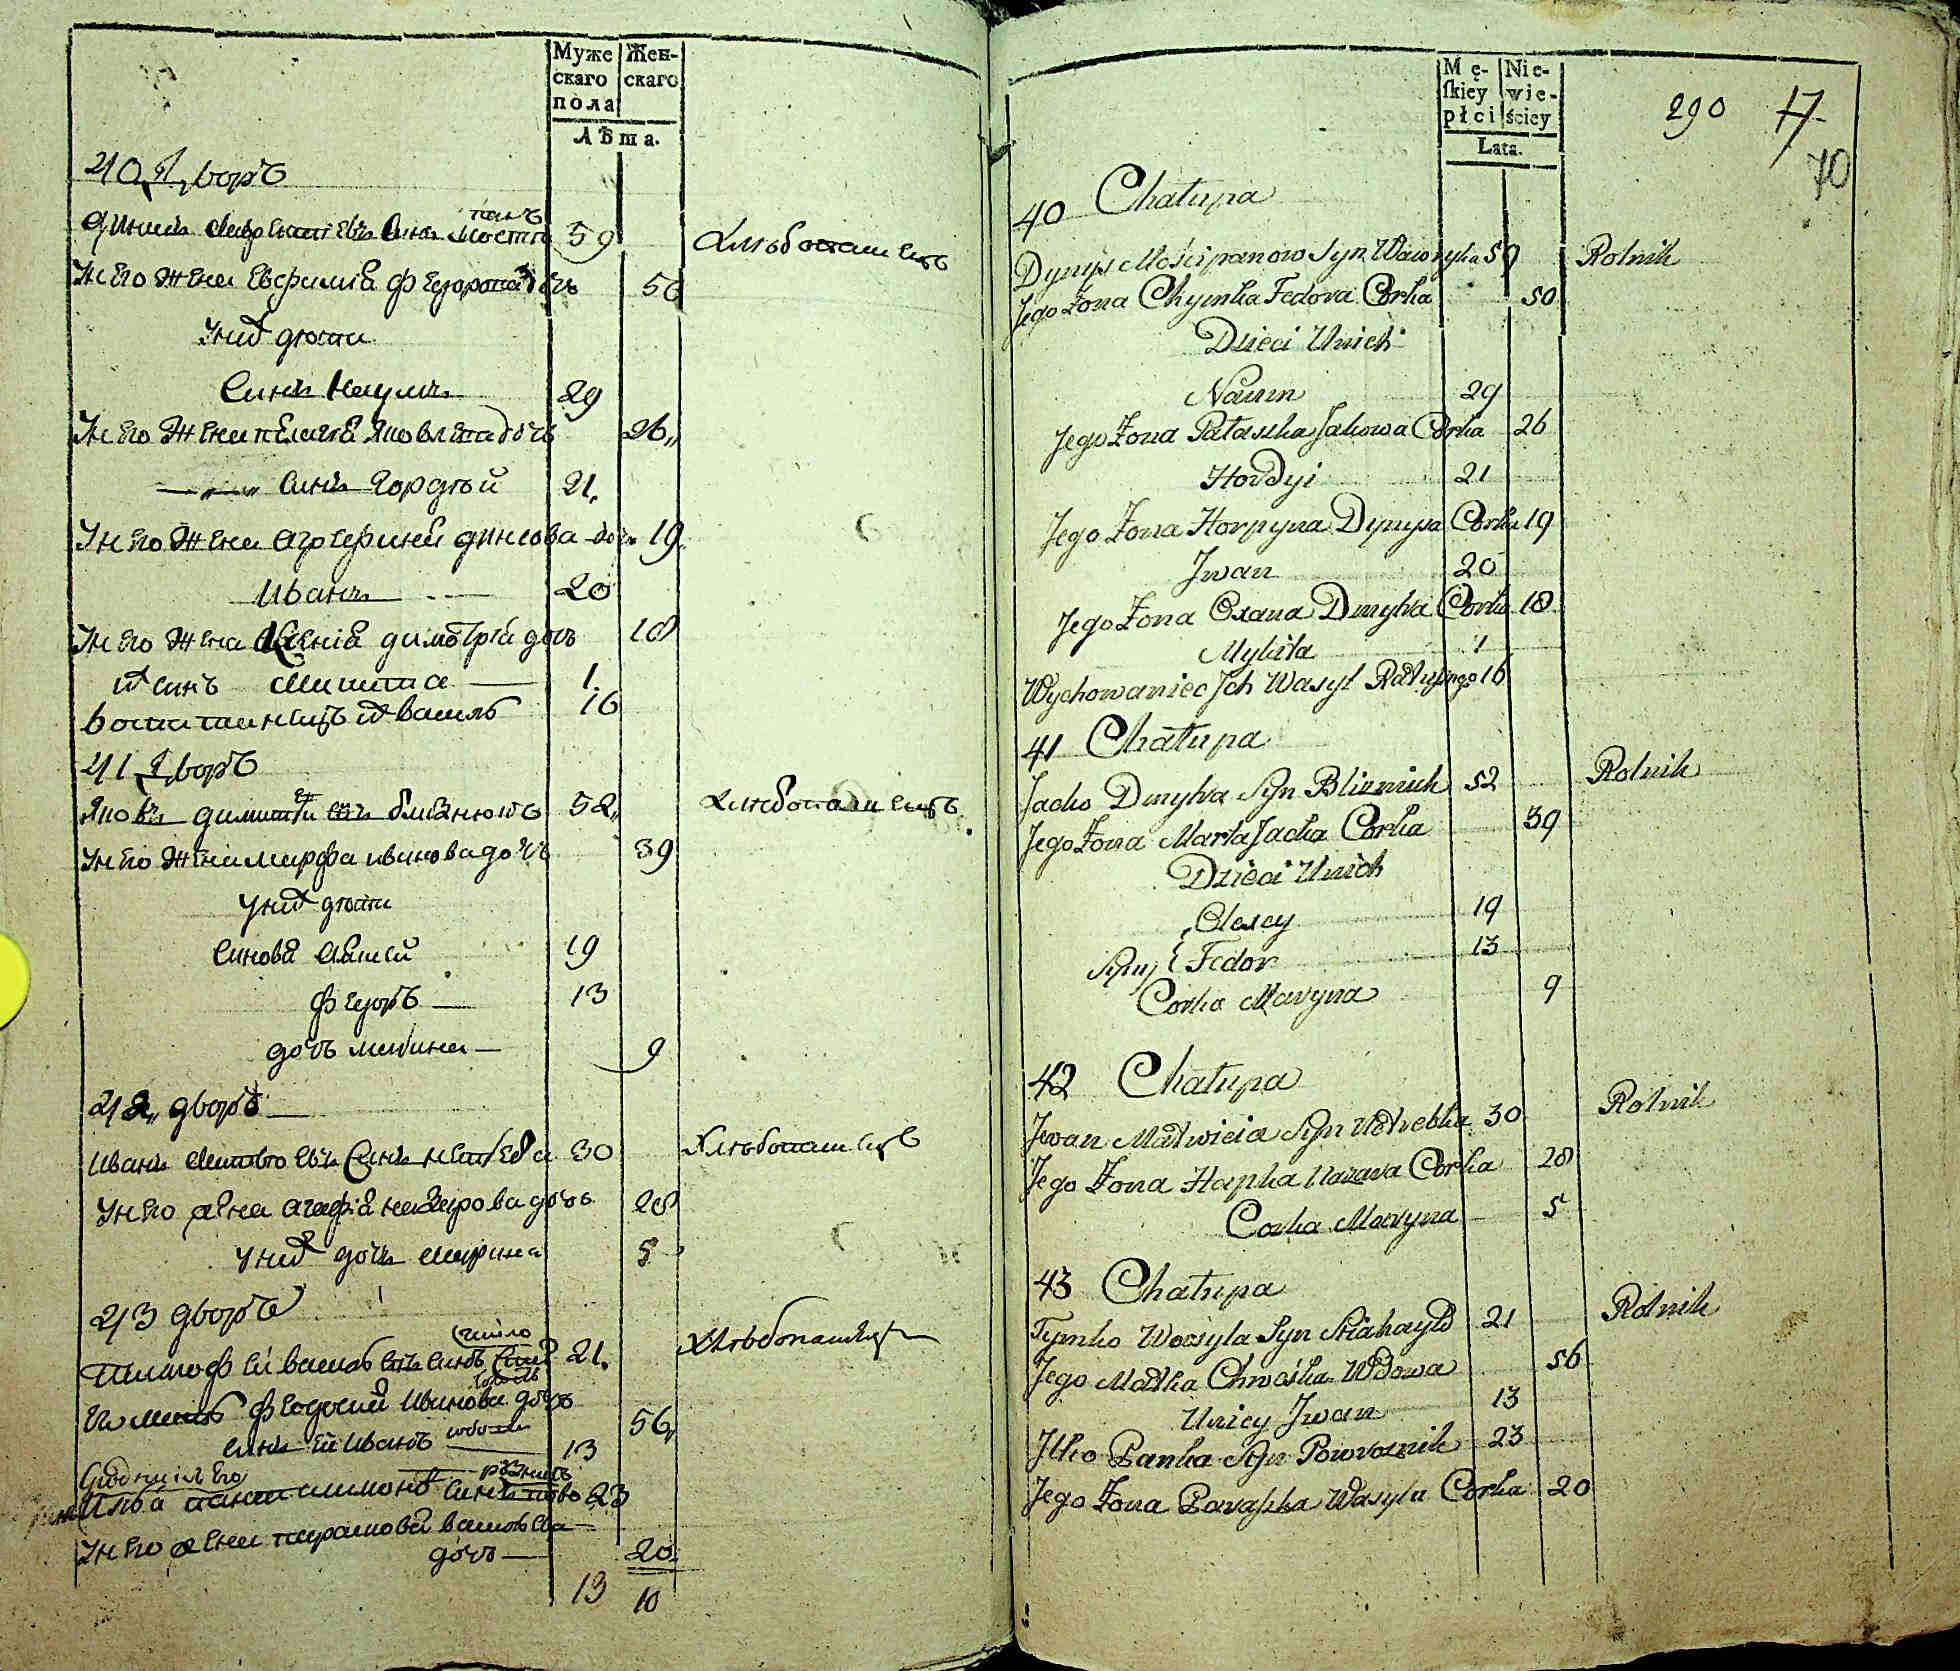 Муже
скаго
пола
Жен-
скаго
Лѣта.
40 Дворъ
59
Хлѣбопашецъ
Унего жена Евфимія Федорова дочь 50
Унихъ дѣти
Синъ Наумъ 29
Унего жена Пелагея Яковлева дочь 26
Синъ Гордѣй 21
Унего жена Агрефина Динисова дочь 19
Иванъ 20
Унего жена Ксенія Димитрія дочь 18
Ихъ синъ Микита 1
Воспитанецъ ихъ Василь 16
41 Дворъ
Яковъ Димитріевъ синъ Близнюкъ 52
Хлѣбопашецъ
Унего жена Марфа Иванова дочь 39
Унихъ дѣти
Синовя Алексей 19
Федоръ 13
дочь Марина 9
42 дворъ
Иванъ Матвеевъ Синъ 30
Хлѣбопашецъ
Унего жена Агафія Назарова дочь 28
Унихъ дочь Марина 5
43 дворъ
Тимофей Васильевъ синъ 21
Хлѣбопашецъ
Его мать Феодосия Иванова дочь
вдова 56
Синъ ей Иванъ 13
Сродникъ его
Илья Пантилимоновъ синъ 23
Унего жена Парасковия Васильева
дочь 20
13 10
Mę-
skiey
płci
Nie-
wie-
ściey
Lata.
290 17
70
40 Chałupa
Dynys Mościpanow Syn Wawryka 59 Rolnik
Jego Żona Chymka Fedora Corka 50
Dzieci Unich
Naum 29
Jego Żona Pałaszka Jakowa Corka 26
Hordyi 21
Jego Żona Horpyna Dynysa Corka 19
Jwan 20
Jego Żona Oxana Dmytra Corka 18
Mykita 1
Wychowaniec Jch Wasyl 16
41 Chałupa
Jacko Dmytra Syn Blizniuk 52 Rolnik
Jego Żona Marta Jacka Corka 39
Dzieci Unich
Olexy 19
Syny { Fedor 13
Corka Maryna 9
42 Chałupa
Jwan Matwieia Syn 30 Rolnik
Jego Żona Hapka Nazara Corka 28
Corka Maryna 5
43 Chałupa
Tymko Wasyla Syn 21 Rolnik
Jego Matka Chwośka Wdowa 56
Uniey Jwan 13
Jlko Panka Syn Powoznik 23
Jego Żona Paraszka Wasyla Corka 20